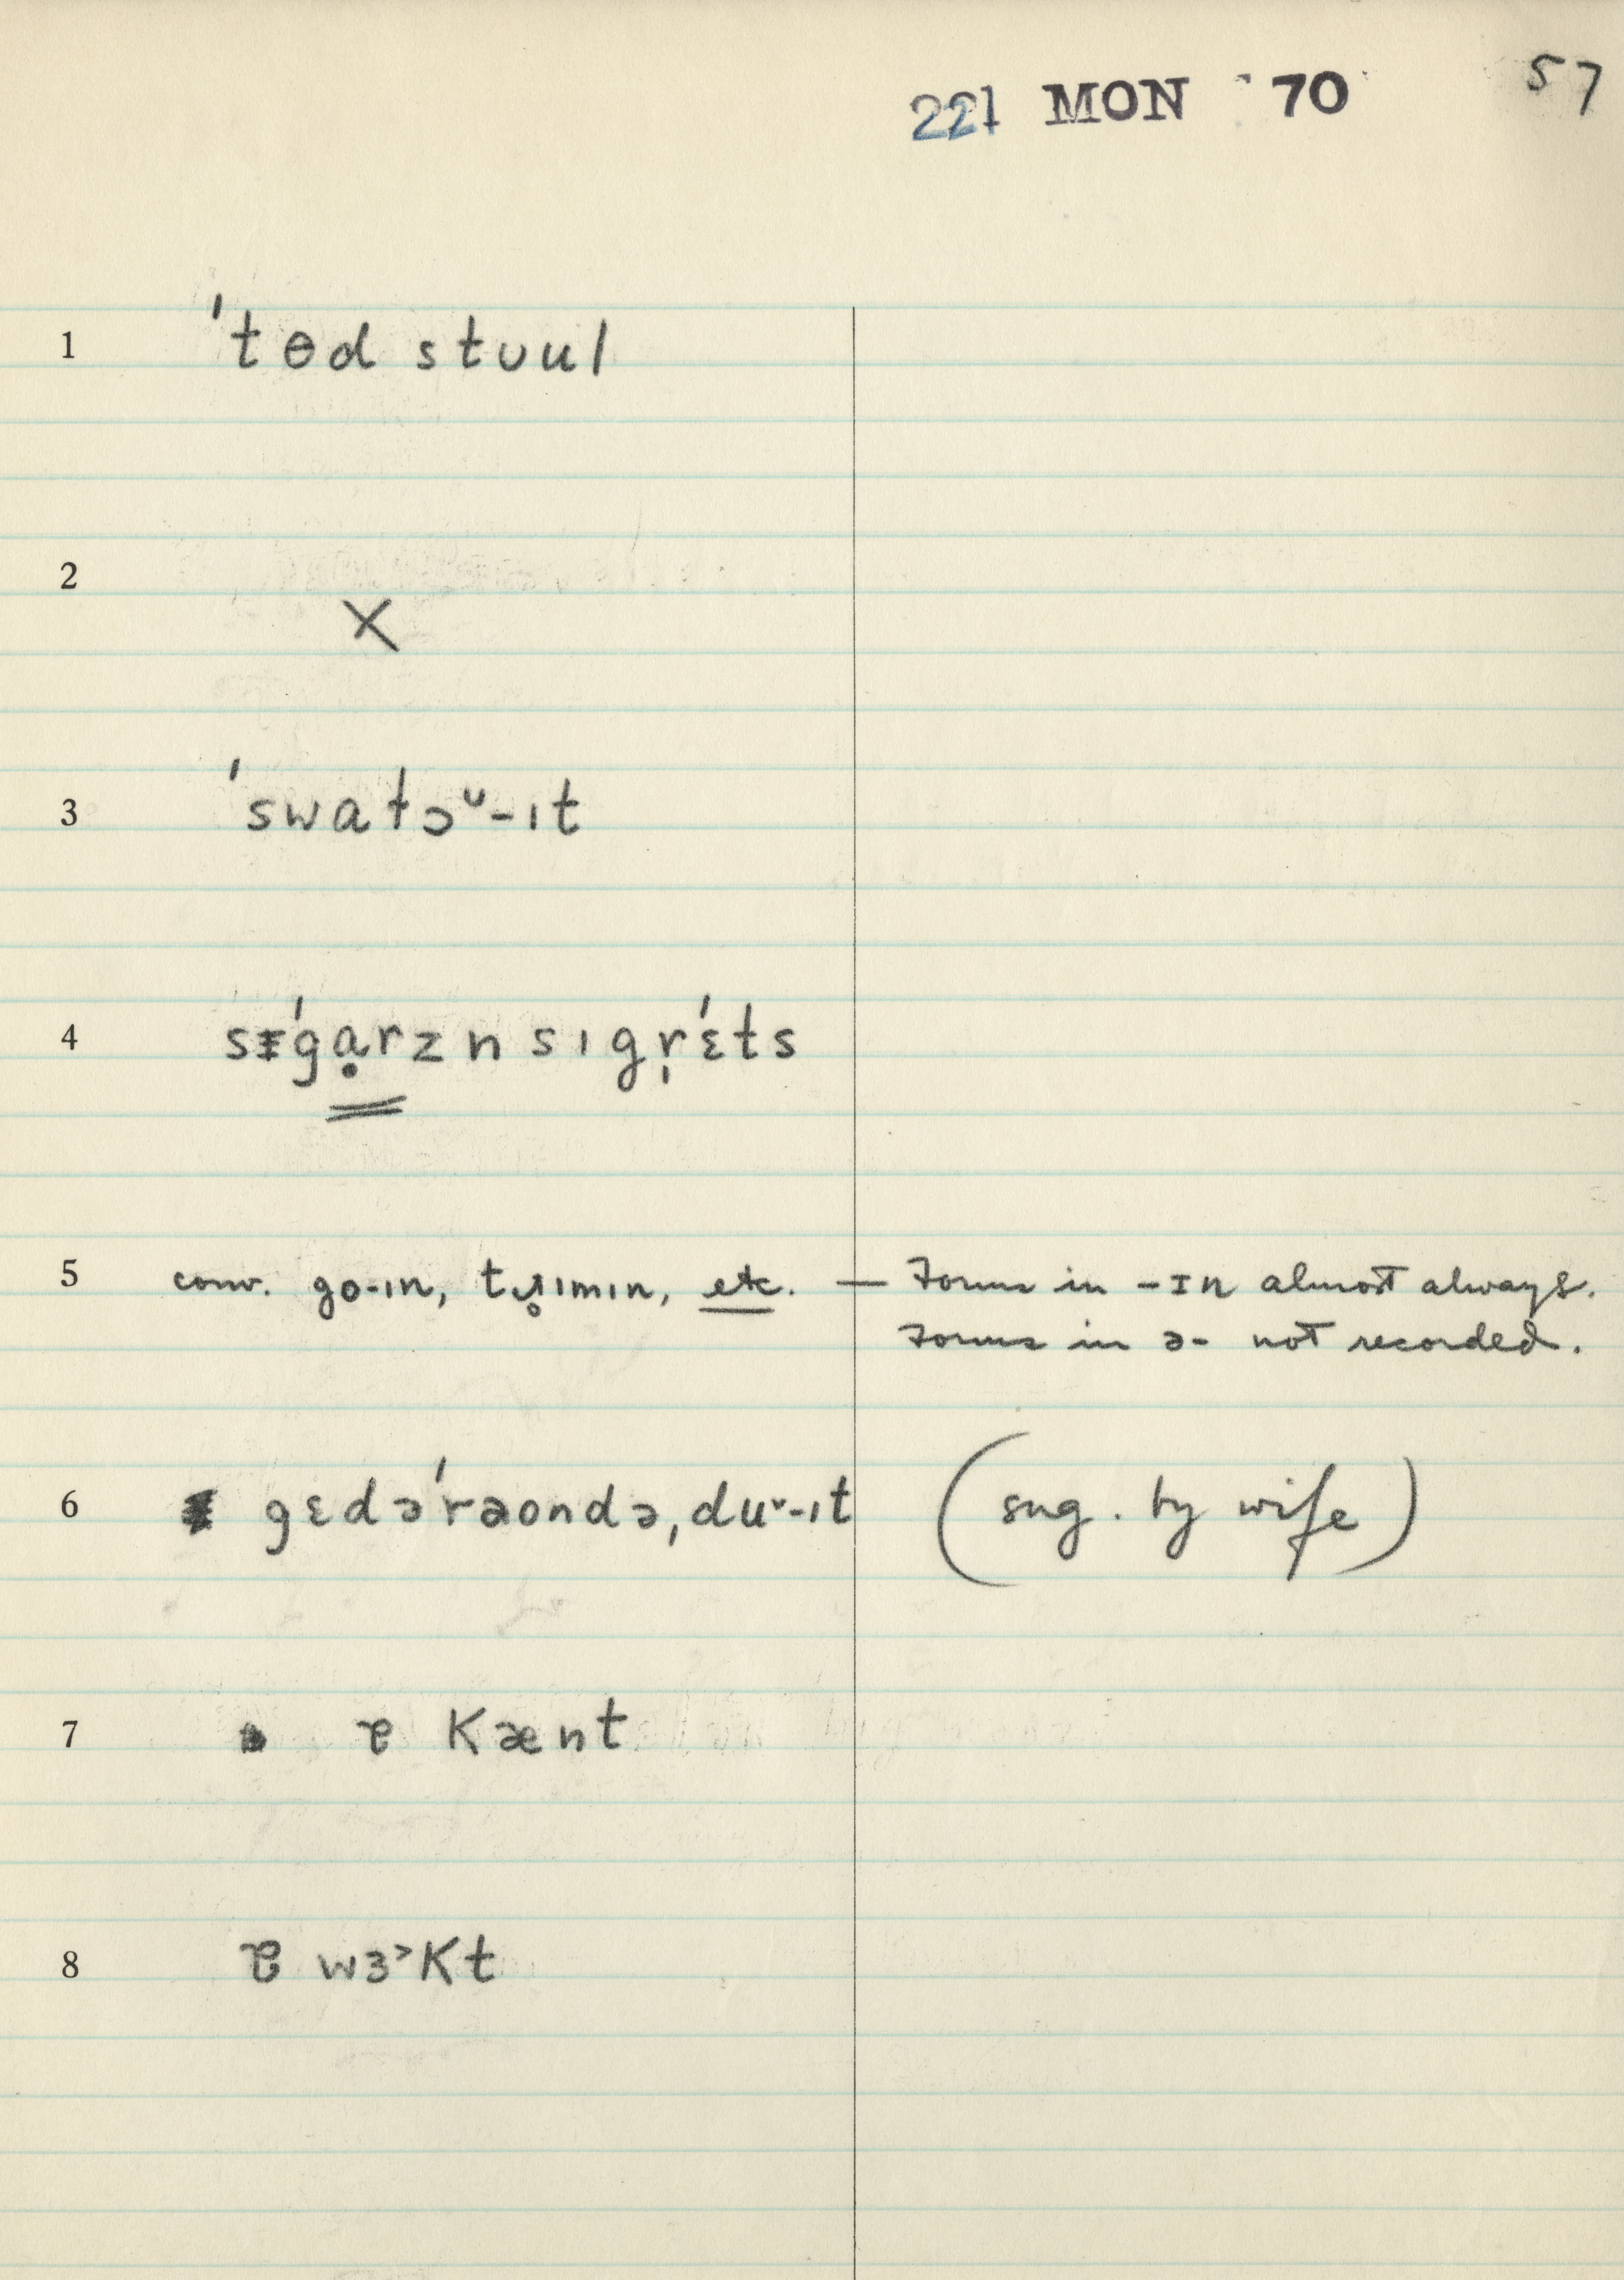 221 MON '70 57
1 'tɵd stuul
2 X
3 'swatɔᵘ-ɪt
4 sɪ'gạrz n sɪgr̩'ɛts
5 conv. go-ɪn, trɪmɪn, etc. — Forms in -ɪn almost always.
Forms in ə- not recorded.
6 gɛdə'raondə, duᵛ-ɪt (sug. by wife)
7 ɐ kænt
8 ɐ wɜ˃kt